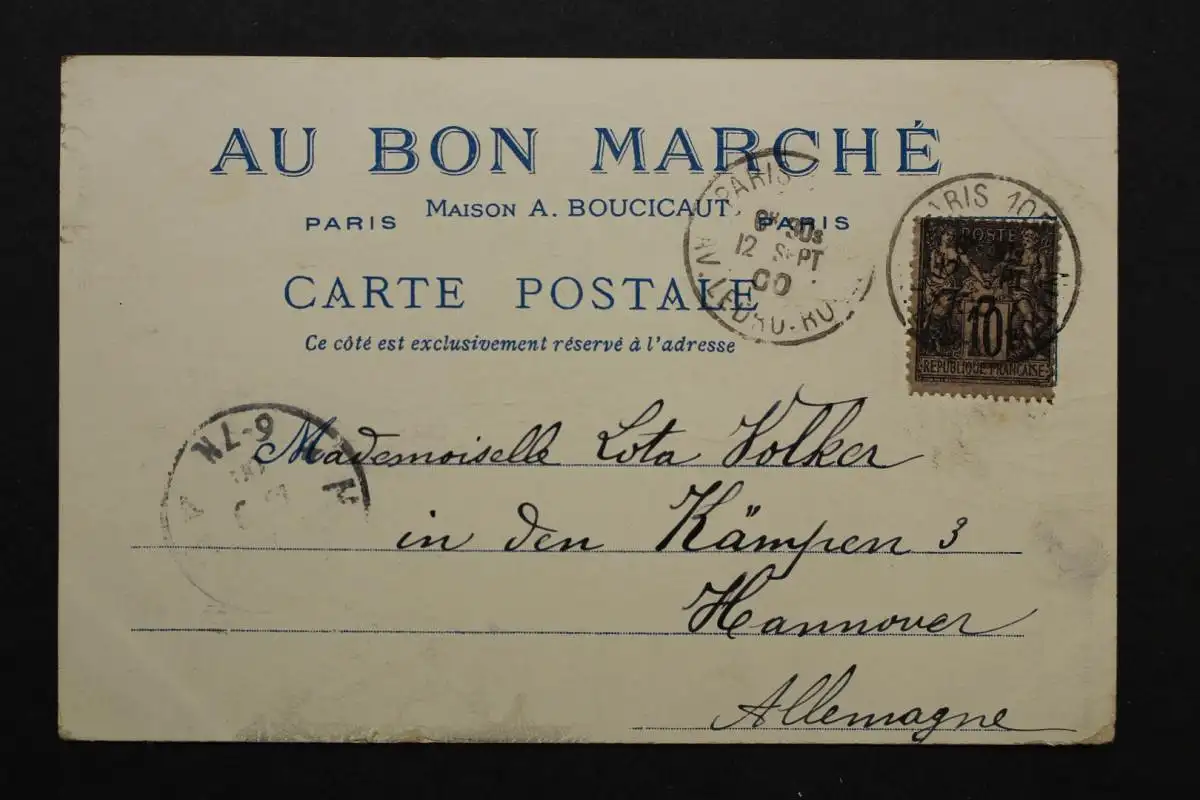 AU BON MARCHÉ
MAISON A. BOUCICAUT,
PARIS PARIS
CARTE POSTALE
Ce côté est exclusivement réservé à l'adresse
PARIS
30s
12 SEPT
00
AV. LEDRU-RO
PARIS 10
POSTE
10
RÉPUBLIQUE FRANÇAISE
6-7N
Mademoiselle Lota Volker
in den Kämpen 3
Hannover
Allemagne